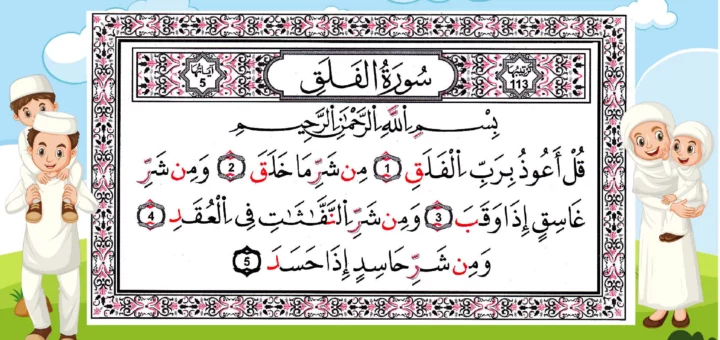 ترتيبها 113
سُورَةُ الْفَلَقِ
آياتها 5
بِسْمِ اللَّهِ الرَّحْمَٰنِ الرَّحِيمِ
قُلْ أَعُوذُ بِرَبِّ الْفَلَقِ 1 مِن شَرِّ مَا خَلَقَ 2 وَمِن شَرِّ
غَاسِقٍ إِذَا وَقَبَ 3 وَمِن شَرِّ النَّفَّٰثَٰتِ فِى الْعُقَدِ 4
وَمِن شَرِّ حَاسِدٍ إِذَا حَسَدَ 5